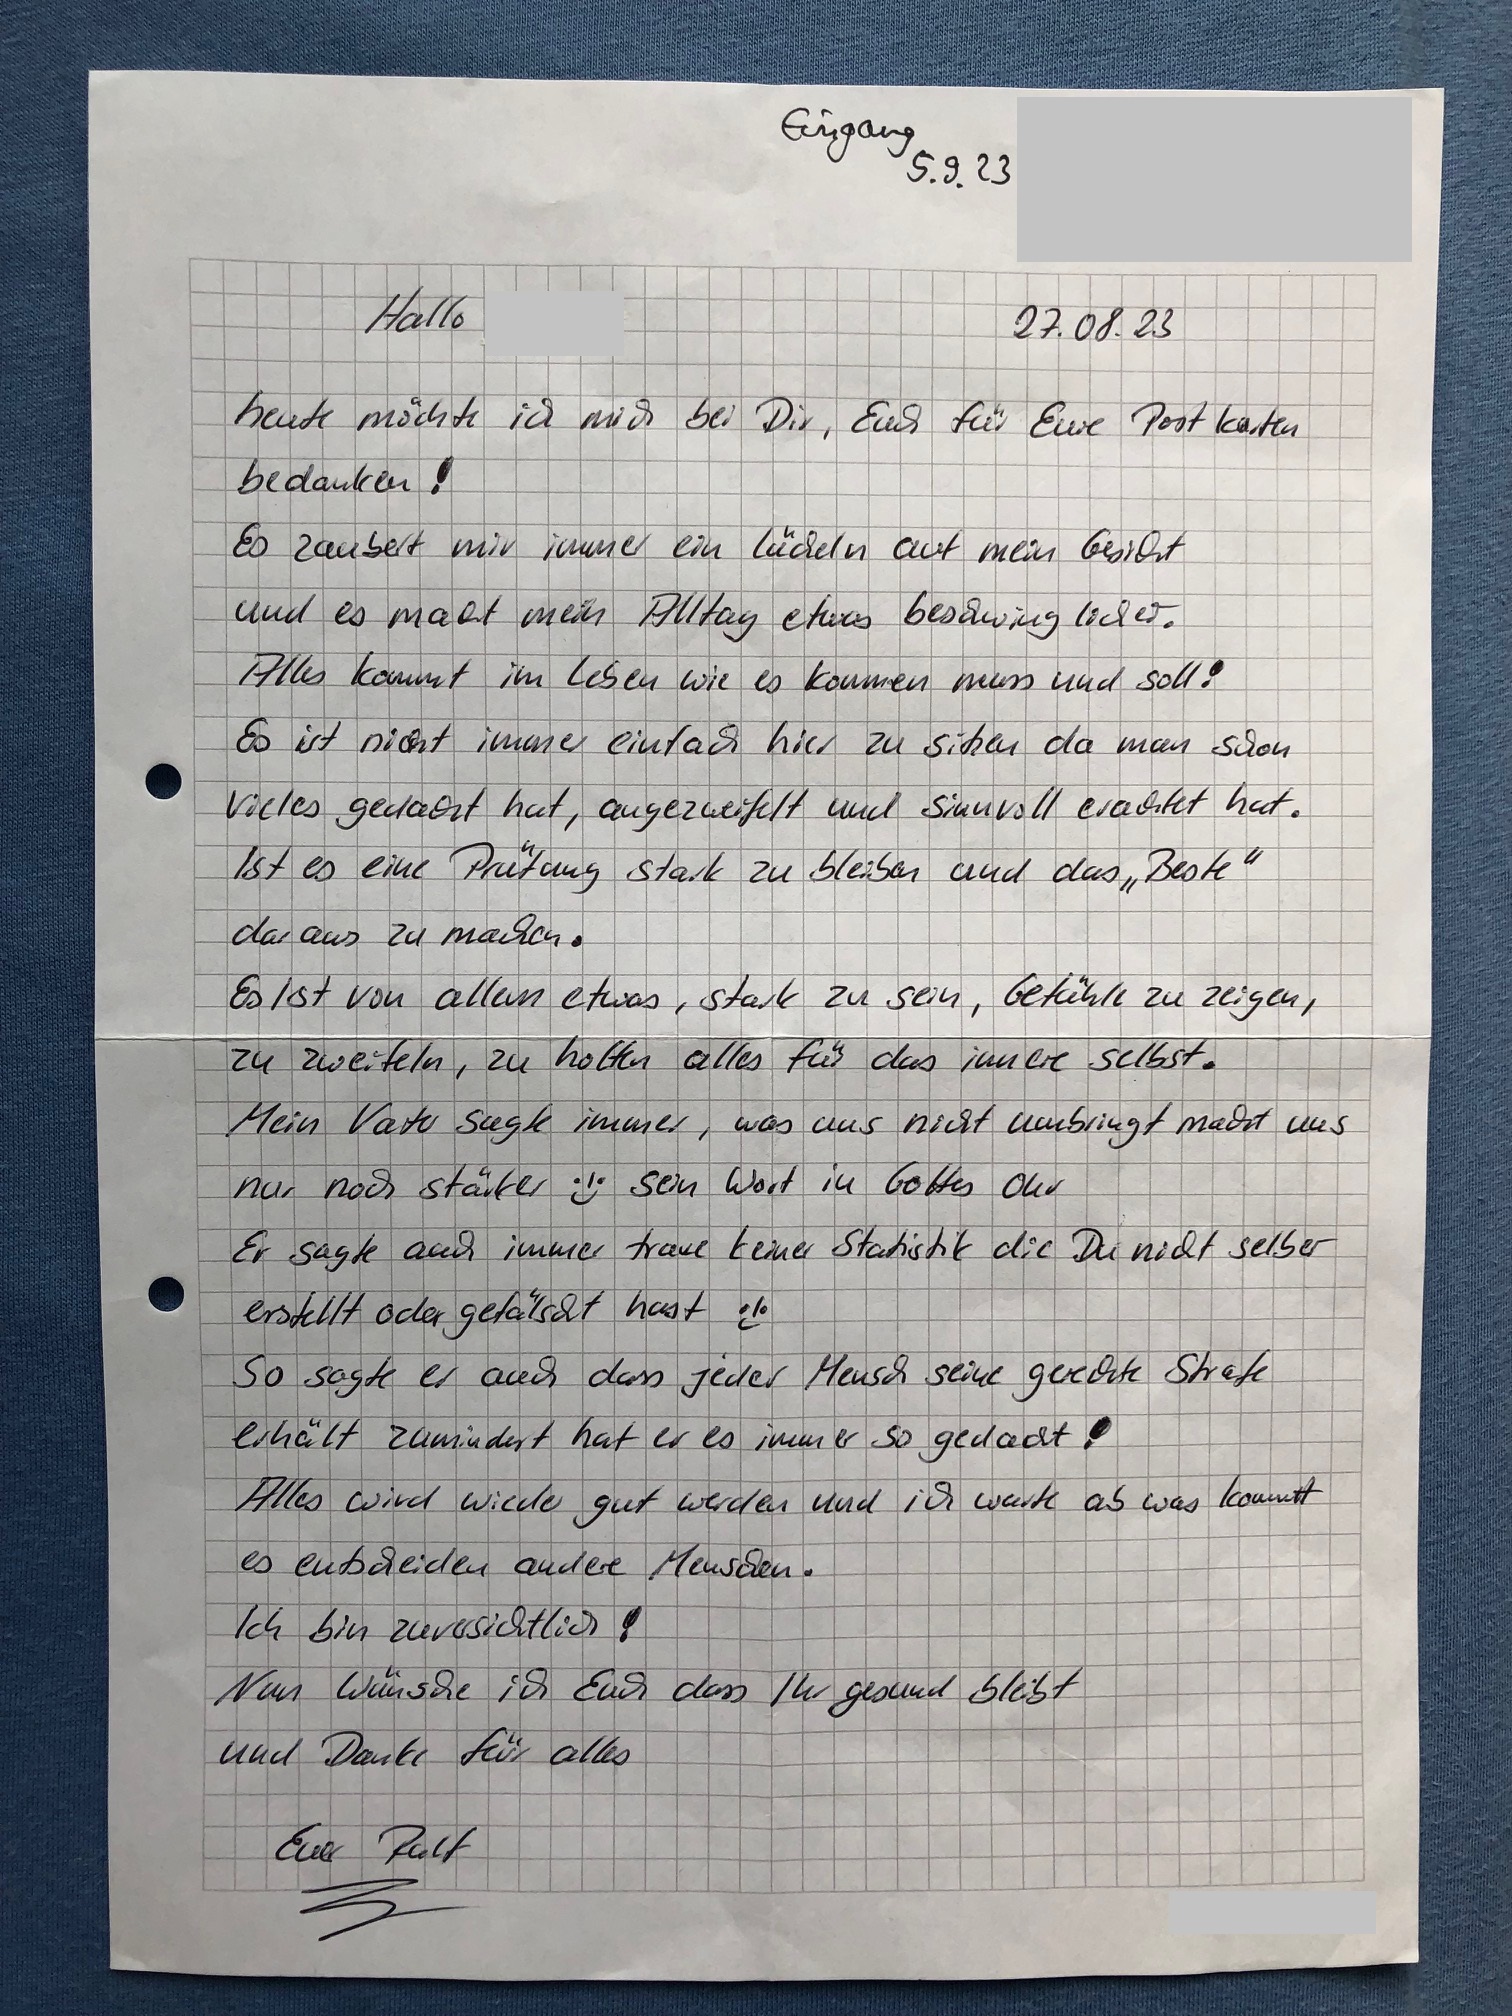 Eingang
5.9.23
Hallo
27.08.23
heute möchte ich mich bei Dir, Euch für Eure Postkarten
bedanken!
Es zaubert mir immer ein lächeln auf mein Gesicht
und es macht mein Alltag etwas beschwinglicher.
Alles kommt im Leben wie es kommen muss und soll!
Es ist nicht immer einfach hier zu sitzen da man schon
vieles gedacht hat, angezweifelt und sinnvoll erachtet hat.
Ist es eine Prüfung stark zu bleiben und das „Beste“
daraus zu machen.
Es ist von allem etwas, stark zu sein, Gefühle zu zeigen,
zu zweifeln, zu hoffen alles für das innere selbst.
Mein Vater sagte immer, was uns nicht umbringt macht uns
nur noch stärker :-) sein Wort in Gottes Ohr
Er sagte auch immer traue keiner Statistik die Du nicht selber
erstellt oder gefälscht hast :-)
So sagte er auch dass jeder Mensch seine gerechte Strafe
erhält zumindest hat er es immer so gedacht!
Alles wird wieder gut werden und ich warte ab was kommt
es entscheiden andere Menschen.
Ich bin zuversichtlich!
Nun wünsche ich Euch dass Ihr gesund bleibt
und Danke für alles
Euer Ralf